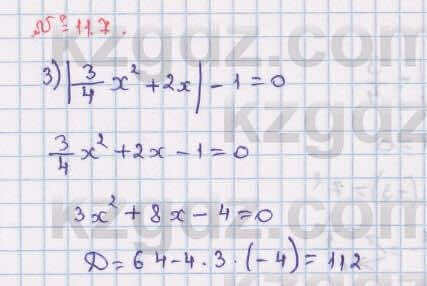 № 11.7.
3) |3/4 x² + 2x| - 1 = 0
3/4 x² + 2x - 1 = 0
3x² + 8x - 4 = 0
D = 64 - 4 · 3 · (-4) = 112
kzgdz.com
kzgdz.com
kzgdz.com